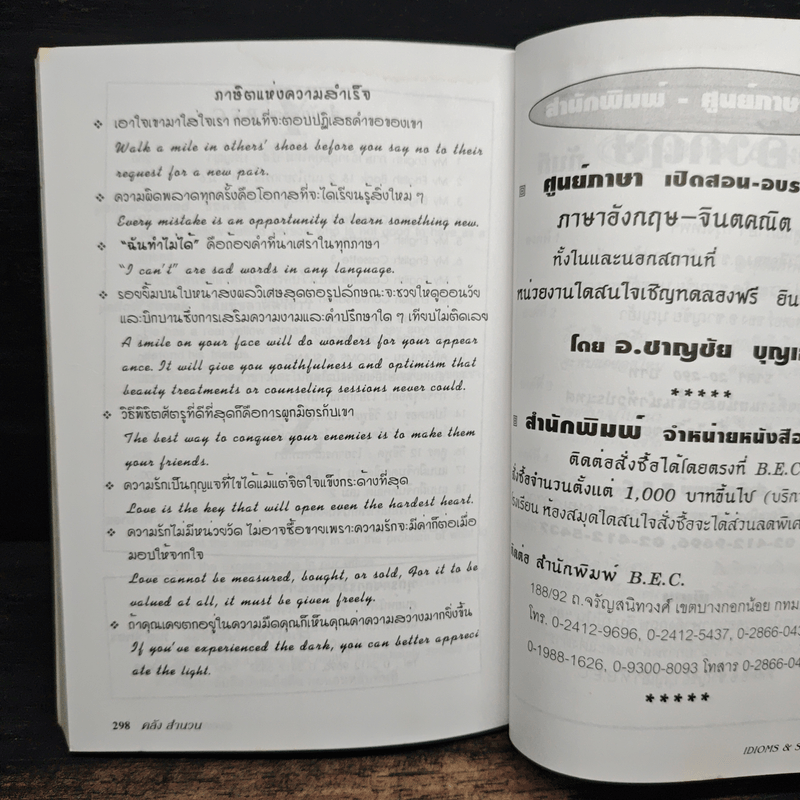 ภาษิตแห่งความสำเร็จ
❖ เอาใจเขามาใส่ใจเรา ก่อนที่จะตอบปฏิเสธคำขอของเขา
Walk a mile in others' shoes before you say no to their
request for a new pair.
❖ ความผิดพลาดทุกครั้งคือโอกาสที่จะได้เรียนรู้สิ่งใหม่ ๆ
Every mistake is an opportunity to learn something new.
❖ "ฉันทำไม่ได้" คือถ้อยคำที่น่าเศร้าในทุกภาษา
"I can't" are sad words in any language.
❖ รอยยิ้มบนใบหน้าส่งผลวิเศษสุดต่อรูปลักษณะจะช่วยให้ดูอ่อนวัย
และเบิกบานซึ่งการเสริมความงามและคำปรึกษาใด ๆ เทียบไม่ติดเลย
A smile on your face will do wonders for your appear
ance. It will give you youthfulness and optimism that
beauty treatments or counseling sessions never could.
❖ วิธีพิชิตศัตรูที่ดีที่สุดก็คือการผูกมิตรกับเขา
The best way to conquer your enemies is to make them
your friends.
❖ ความรักเป็นกุญแจที่ไขได้แม้แต่จิตใจแข็งกระด้างที่สุด
Love is the key that will open even the hardest heart.
❖ ความรักไม่มีหน่วยวัด ไม่อาจซื้อขายเพราะความรักจะมีค่าก็ต่อเมื่อ
มอบให้จากใจ
Love cannot be measured, bought, or sold, For it to be
valued at all, it must be given freely.
❖ ถ้าคุณเคยตกอยู่ในความมืดคุณก็เห็นคุณค่าความสว่างมากยิ่งขึ้น
If you've experienced the dark, you can better appreci
ate the light.
298 คลัง สำนวน
สำนักพิมพ์ - ศูนย์ภาษา
ศูนย์ภาษา เปิดสอน-อบร
ภาษาอังกฤษ–จินตคณิต
ทั้งในและนอกสถานที่
หน่วยงานใดสนใจเชิญทดลองฟรี อิน
โดย อ.ชาญชัย บุญเ
*****
สำนักพิมพ์ จำหน่ายหนังสือ
ติดต่อสั่งซื้อได้โดยตรงที่ B.E.C
สั่งซื้อจำนวนตั้งแต่ 1,000 บาทขึ้นไป (บริกา
โรงเรียน ห้องสมุดใดสนใจสั่งซื้อจะได้ส่วนลดพิเศ
ติดต่อ สำนักพิมพ์ B.E.C.
188/92 ถ.จรัญสนิทวงศ์ เขตบางกอกน้อย กทม
โทร. 0-2412-9696, 0-2412-5437, 0-2866-043
0-1988-1626, 0-9300-8093 โทสาร 0-2866-04
*****
IDIOMS & S